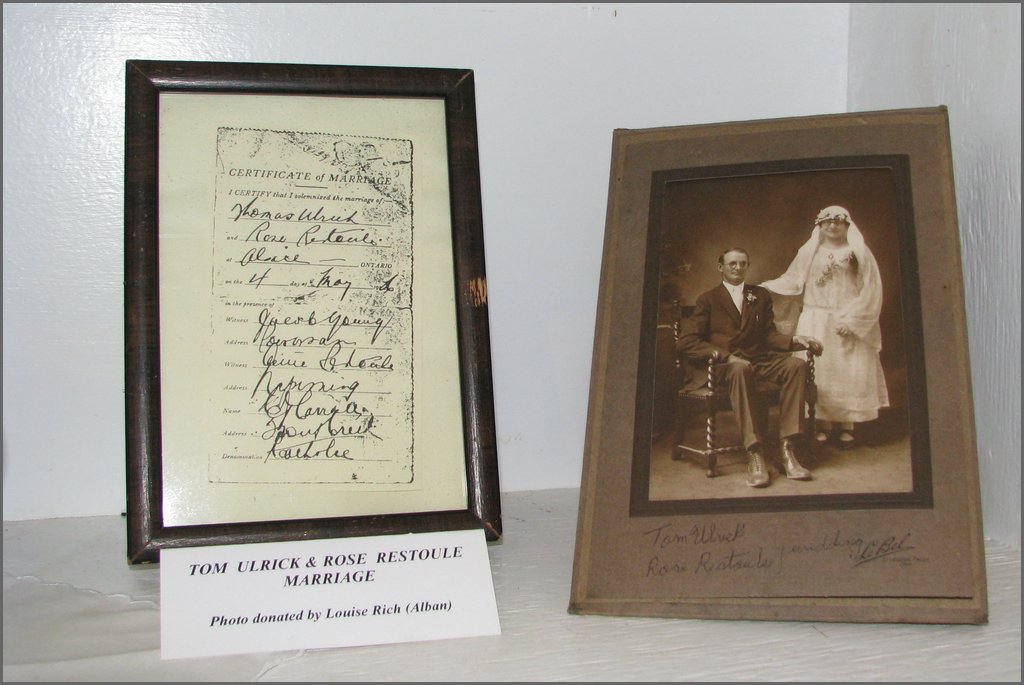 CERTIFICATE of MARRIAGE
I CERTIFY that I solemnized the marriage of:
Thomas Ulrich
and Rose Restoule
at Alsace ONTARIO
on the 4 day of May
in the presence of
Witness Jacob Young
Address
Witness Restoule
Address Nipissing
Name
Address Trout Creek
Denomination Catholic
TOM ULRICK & ROSE RESTOULE
MARRIAGE
Photo donated by Louise Rich (Alban)
Tom Ulrick
Rose Restoule wedding
LeBel